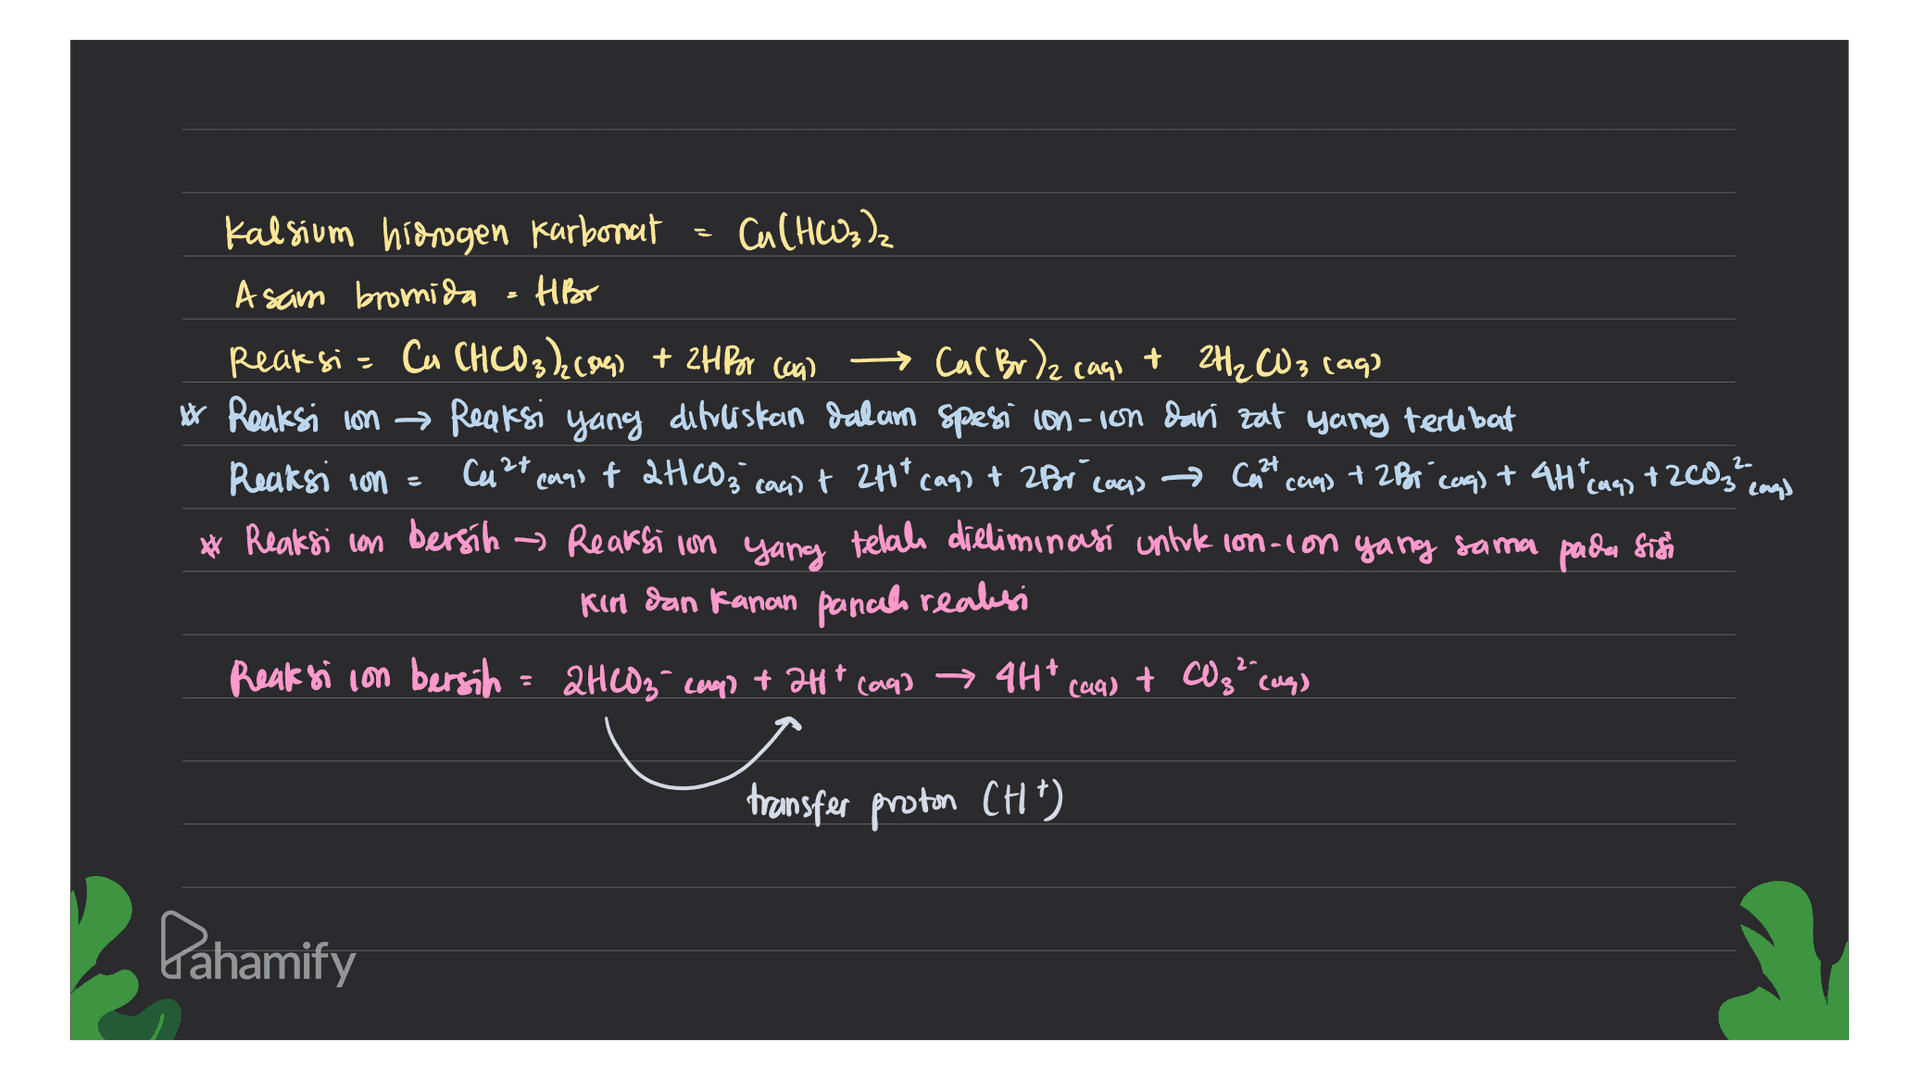 Kalsium hidrogen karbonat = Ca(HCO₃)₂
Asam bromida = HBr
Reaksi = Ca(HCO₃)₂(aq) + 2HBr(aq) ⟶ Ca(Br)₂(aq) + 2H₂CO₃(aq)
* Reaksi ion → Reaksi yang dituliskan dalam spesi ion-ion dari zat yang terlibat
Reaksi ion = Ca²⁺(aq) + 2HCO₃⁻(aq) + 2H⁺(aq) + 2Br⁻(aq) → Ca²⁺(aq) + 2Br⁻(aq) + 4H⁺(aq) + 2CO₃²⁻(aq)
* Reaksi ion bersih → Reaksi ion yang telah dieliminasi untuk ion-ion yang sama pada sisi
kiri dan kanan panah reaksi
Reaksi ion bersih = 2HCO₃⁻(aq) + 2H⁺(aq) → 4H⁺(aq) + CO₃²⁻(aq)
transfer proton (H⁺)
Pahamify